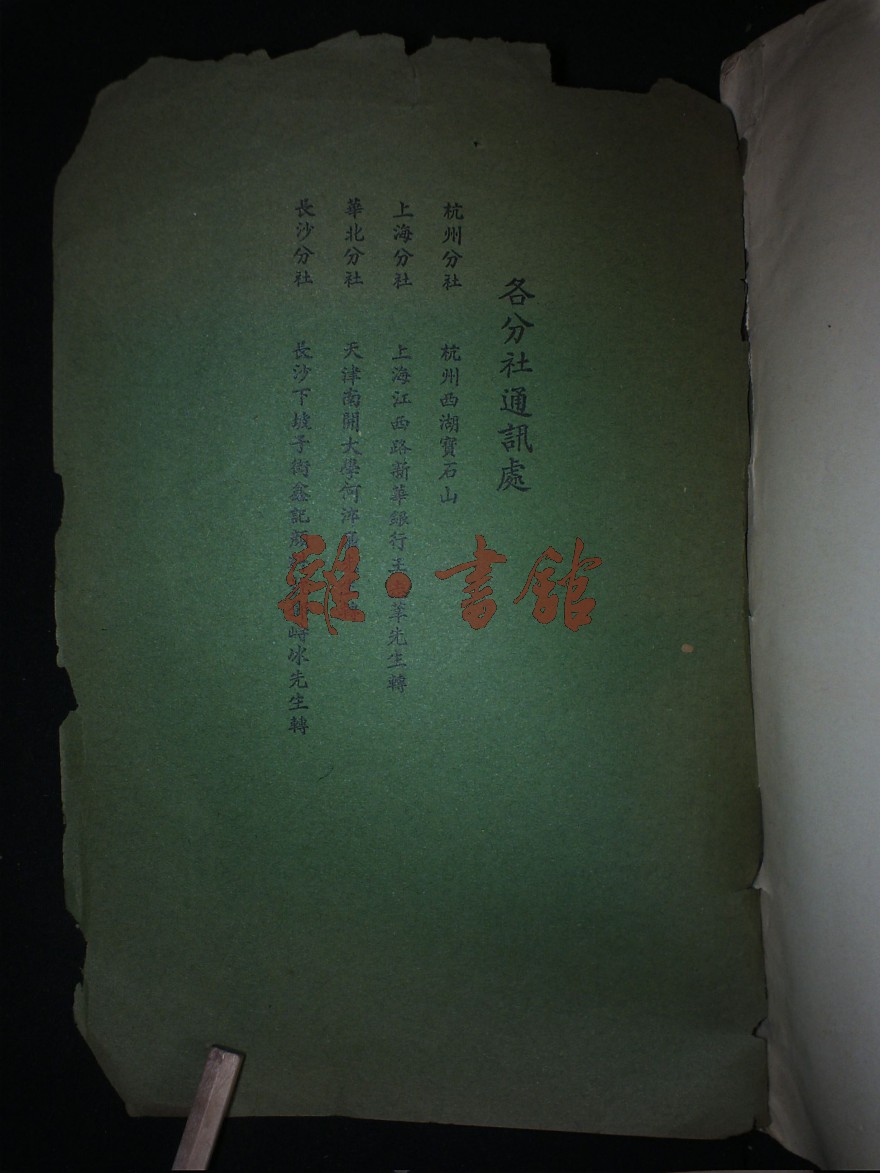 各分社通訊處
杭州分社 杭州西湖寶石山
上海分社 上海江西路新華銀行王 先生轉
華北分社 天津南開大學何
長沙分社 長沙下坡子街鑫記 冰先生轉
雜·書館